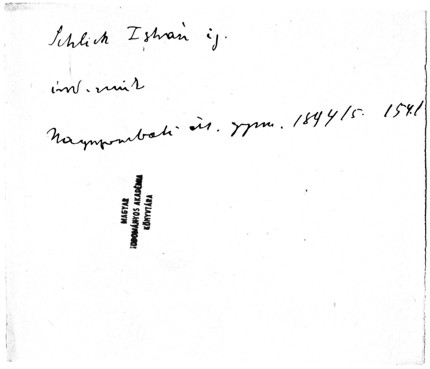 Schlick István ig.
irod. mint
Nagyszombati ért. gymn. 1894/5. 154.l
MAGYAR
TUDOMÁNYOS AKADÉMIA
KÖNYVTÁRA